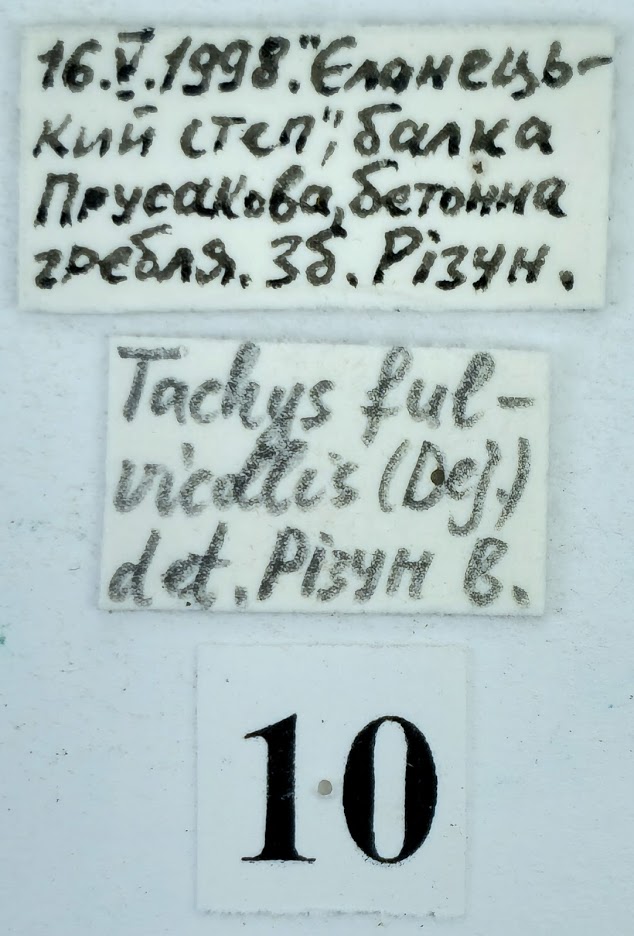 16.V.1998. "Єланець-
кий степ", балка
Прусакова, бетонна
гребля. Зб. Різун.
Tachys ful-
vicollis (Dej.)
det. Різун В.
10